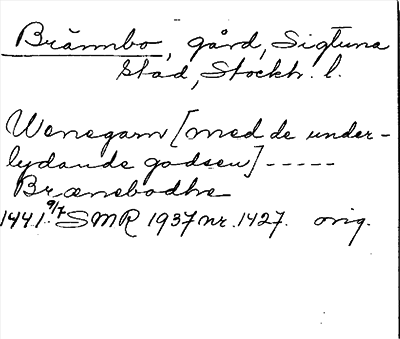 Brännbo, gård, Sigtuna
stad, Stockh. l.
Wenegarn [med de under-
lydande godsen] -----
Brænebodhe
1441 9/7 SMR 1937 nr. 1427. orig.